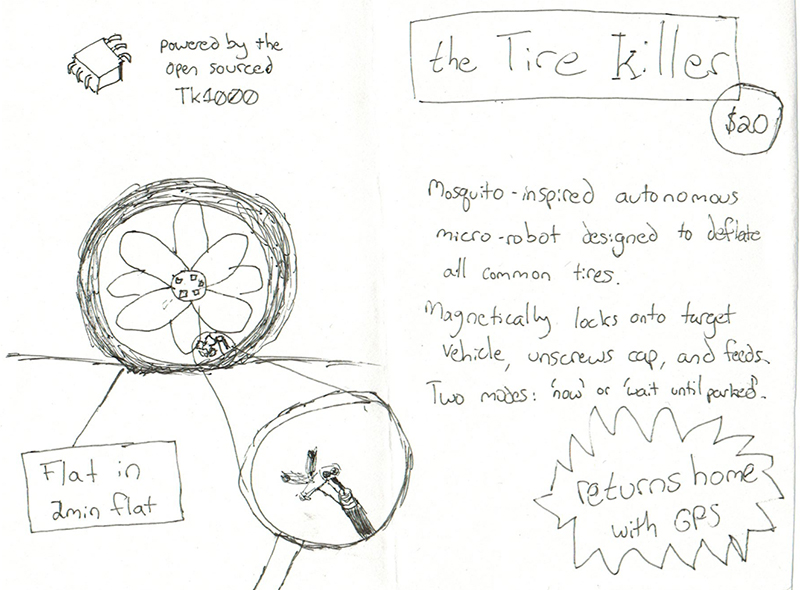 powered by the
open sourced
Tk1000
Flat in
2min flat
the Tire Killer
$20
Mosquito-inspired autonomous
micro-robot designed to deflate
all common tires.
Magnetically locks onto target
vehicle, unscrews cap, and feeds.
Two modes: 'now' or 'wait until parked'.
returns home
with GPS